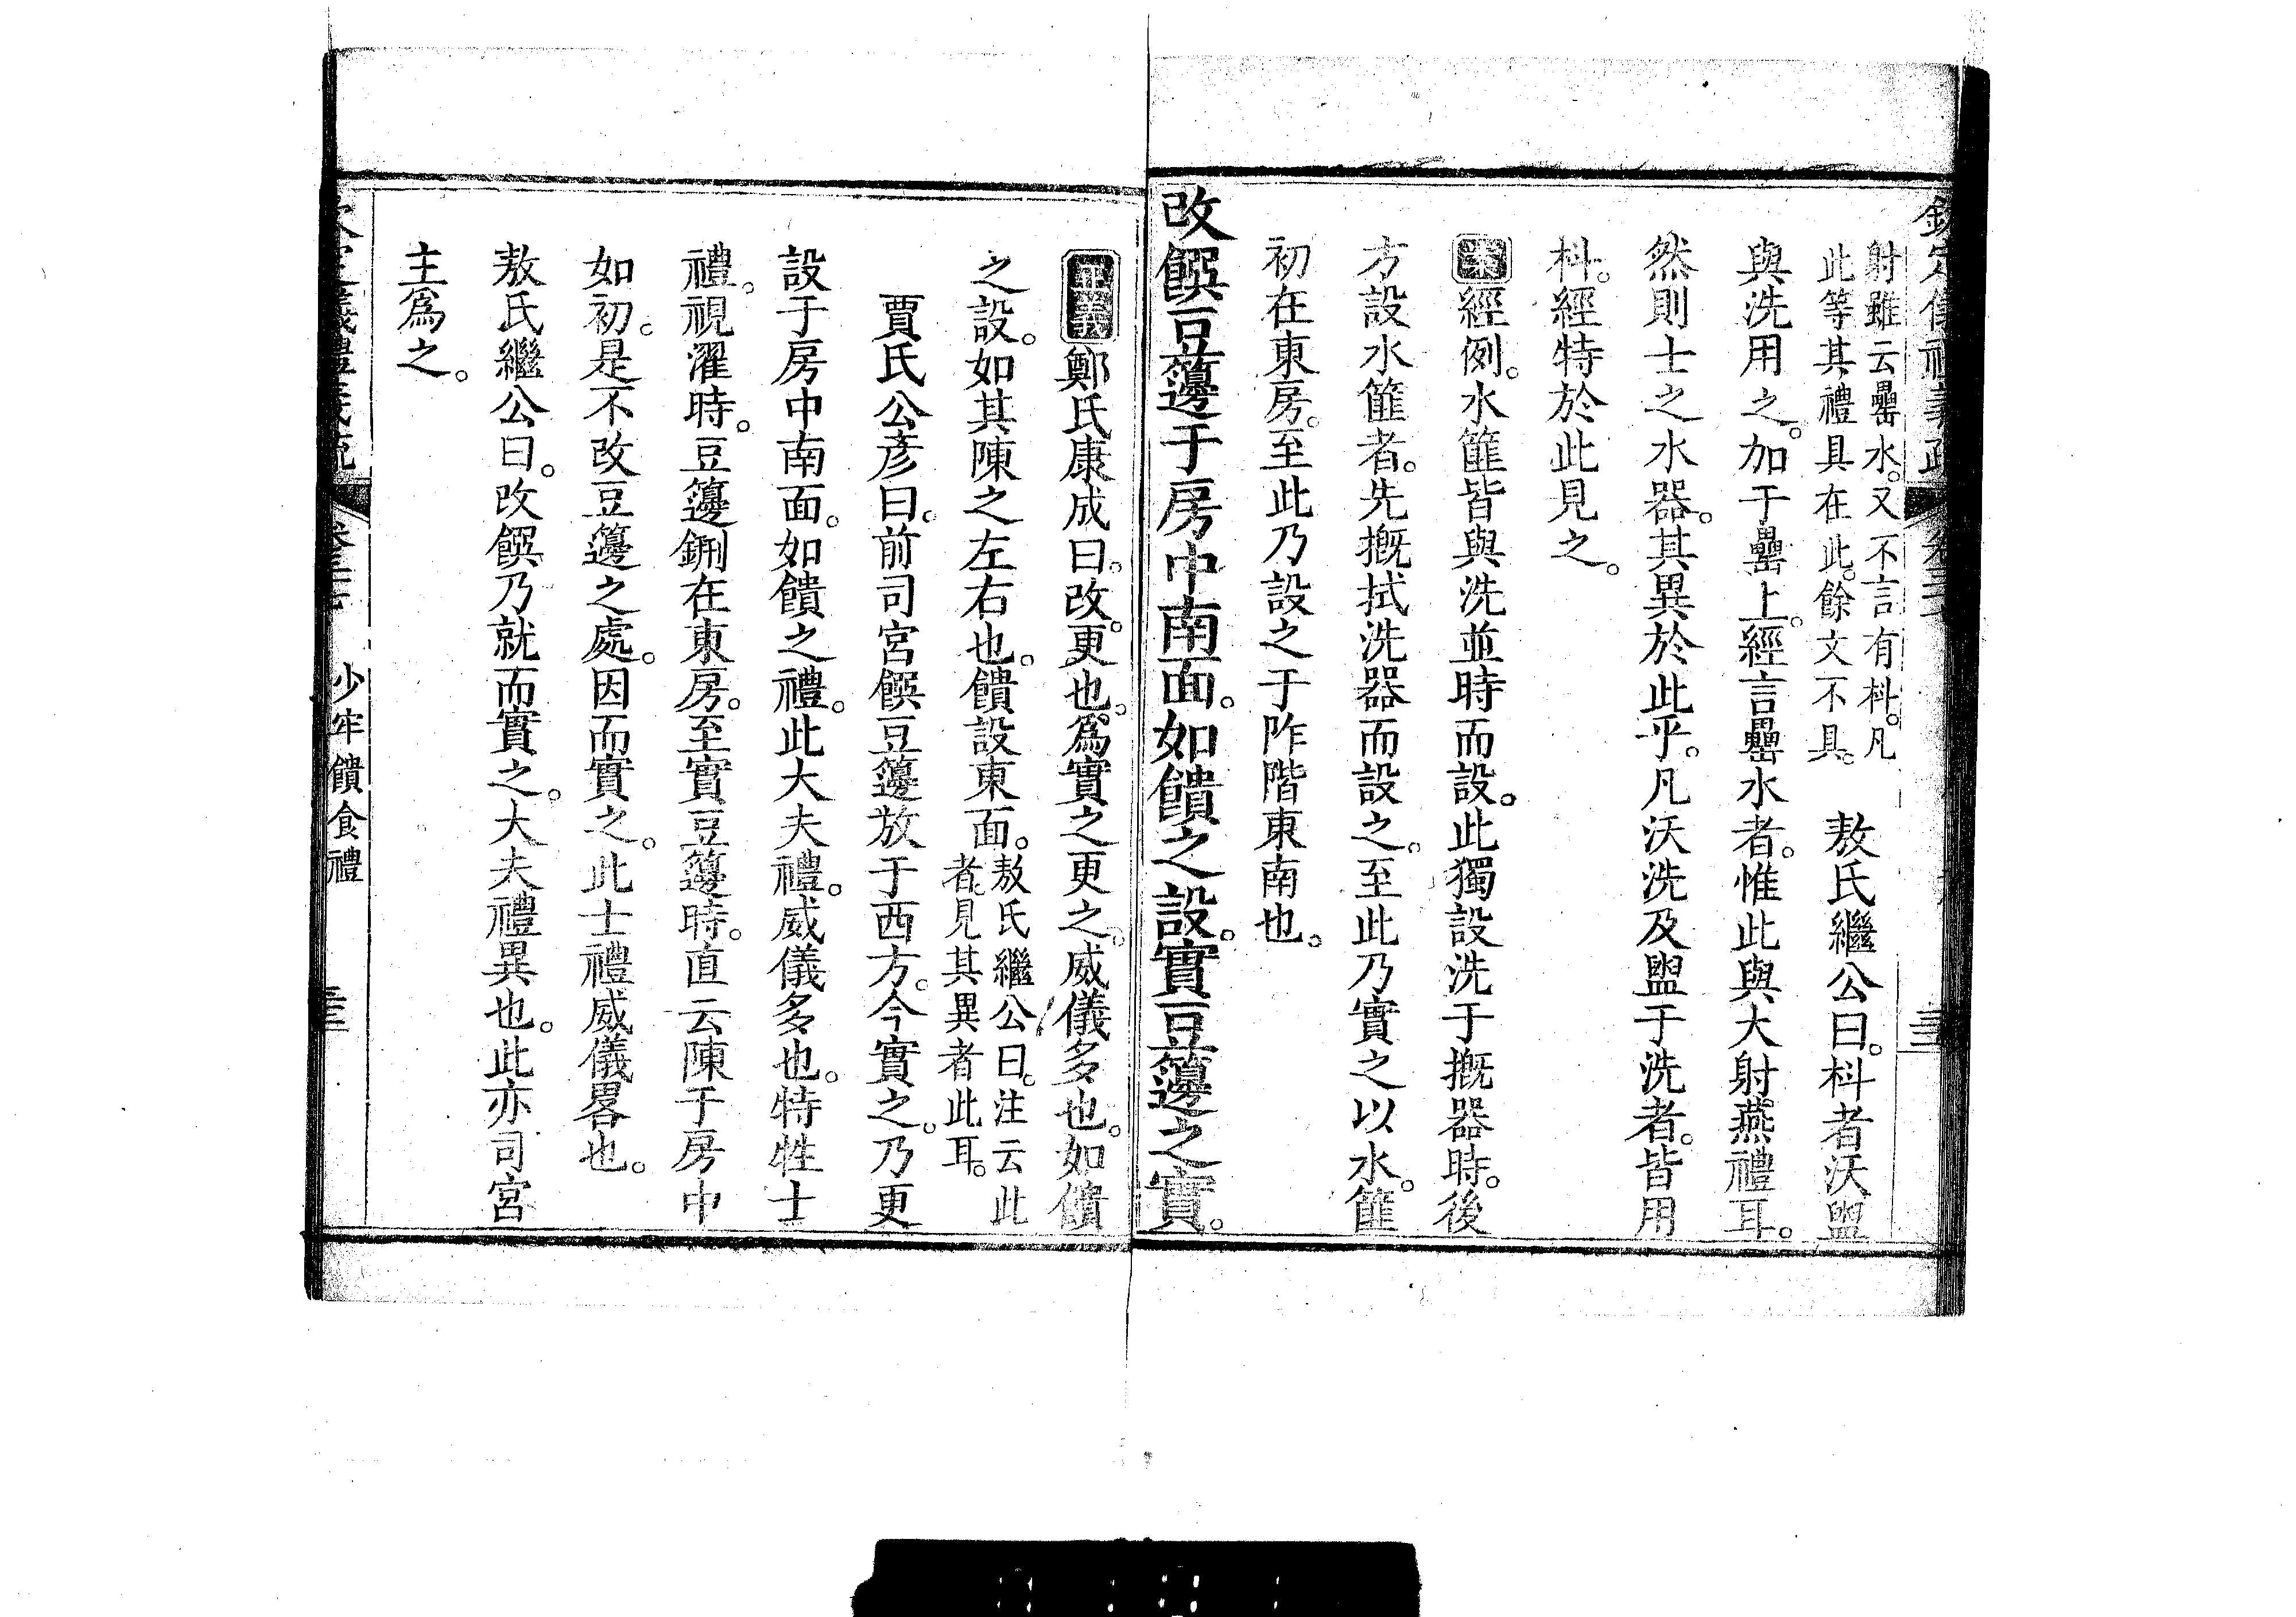 欽定儀禮義疏 卷三十
射雖云罍水。又不言有枓。凡
此等其禮具在此。餘文不具。
敖氏繼公曰。枓者沃盥
與洗用之。加于罍上。經言罍水者。惟此與大射燕禮耳。
然則士之水器。其異於此乎。凡沃洗及盥于洗者。皆用
枓。經特於此見之。
案經例。水篚皆與洗並時而設。此獨設洗于摡器時。後
方設水篚者。先摡拭洗器而設之。至此乃實之以水。篚
初在東房。至此乃設之于阼階東南也。
改饌豆籩于房中南面。如饋之設。實豆籩之實。
正義鄭氏康成曰。改。更也。爲實之更之。威儀多也。如饋
之設。如其陳之左右也。饋設東面。
敖氏繼公曰。注云此
者。見其異者此耳。
賈氏公彥曰。前司宮饌豆籩放于西方。今實之。乃更
設于房中南面。如饋之禮。此大夫禮。威儀多也。特牲士
禮。視濯時。豆籩鉶在東房。至實豆籩時。直云陳于房中
如初。是不改豆籩之處。因而實之。此士禮威儀畧也。
敖氏繼公曰。改饌乃就而實之。大夫禮異也。此亦司宮
主爲之。
儀禮義疏 少牢饋食禮